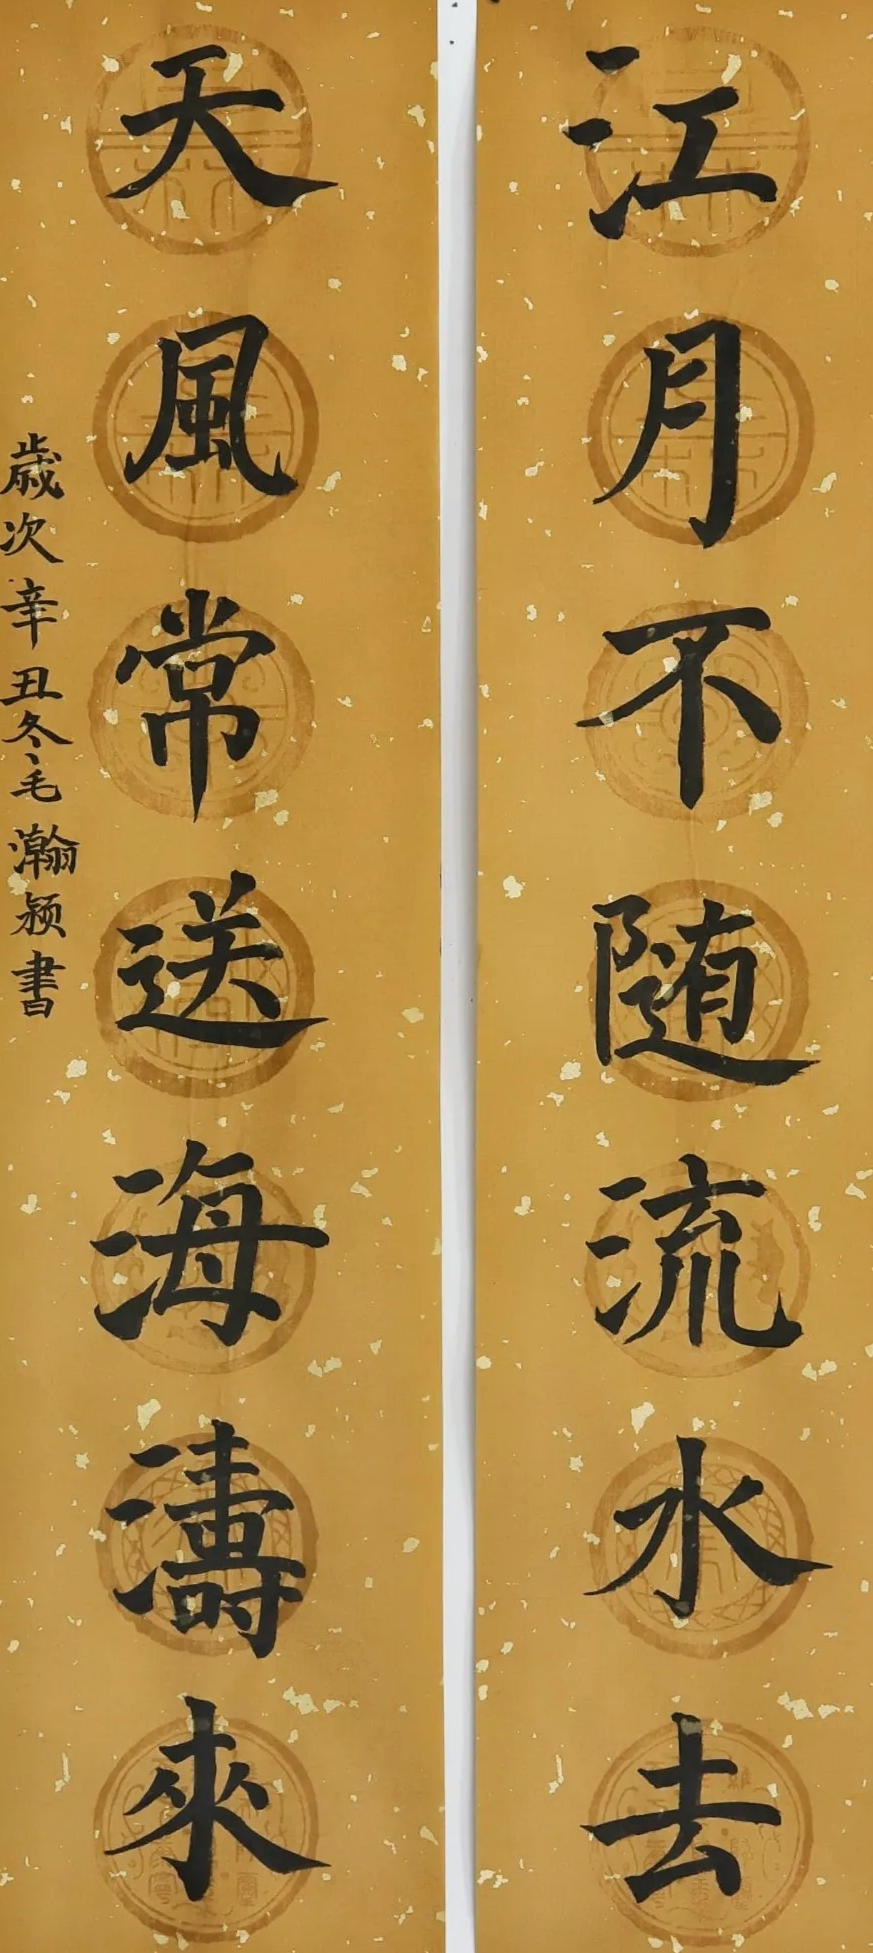 江月不随流水去
天風常送海濤來
歲次辛丑冬毛瀚颍書